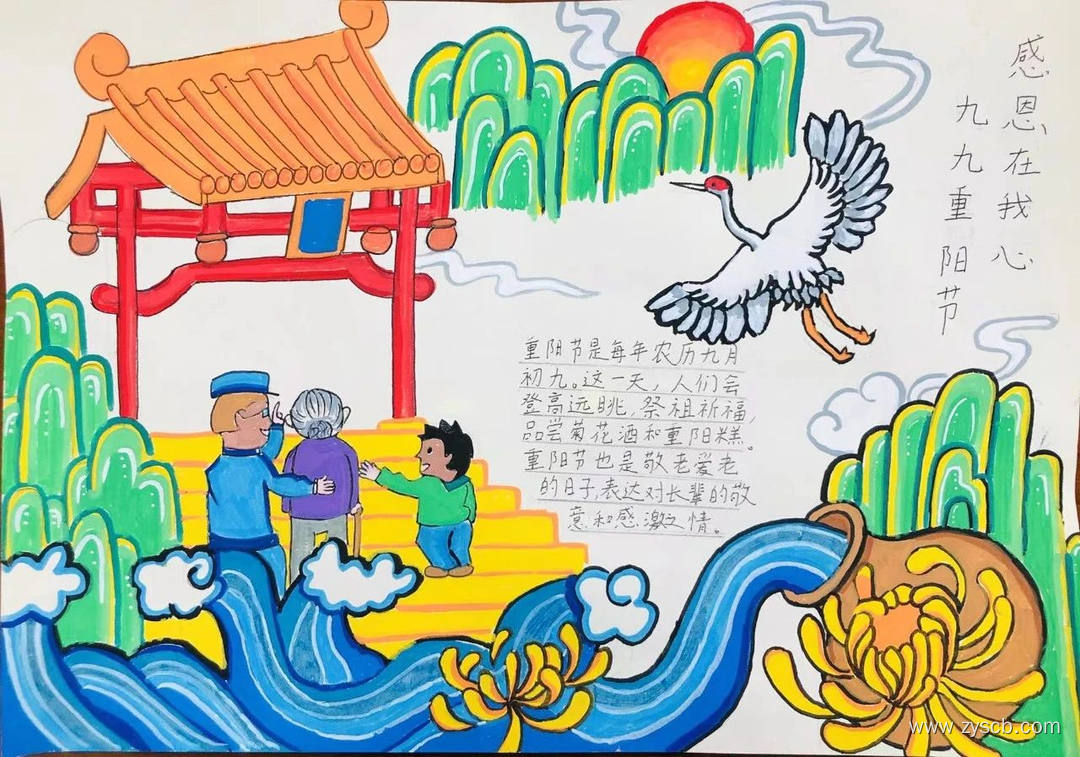 感恩在我心
九九重阳节
重阳节是每年农历九月
初九。这一天，人们会
登高远眺，祭祖祈福，
品尝菊花酒和重阳糕。
重阳节也是敬老爱老
的日子，表达对长辈的敬
意和感激之情。
www.zyscb.com